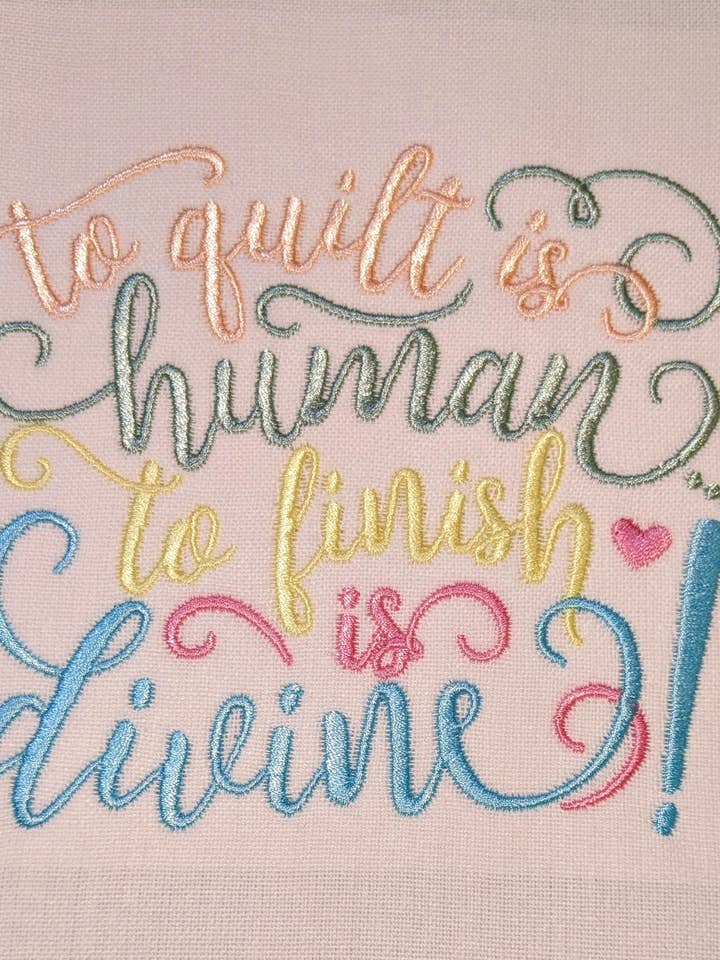 to quilt is
human...
to finish
is
divine!